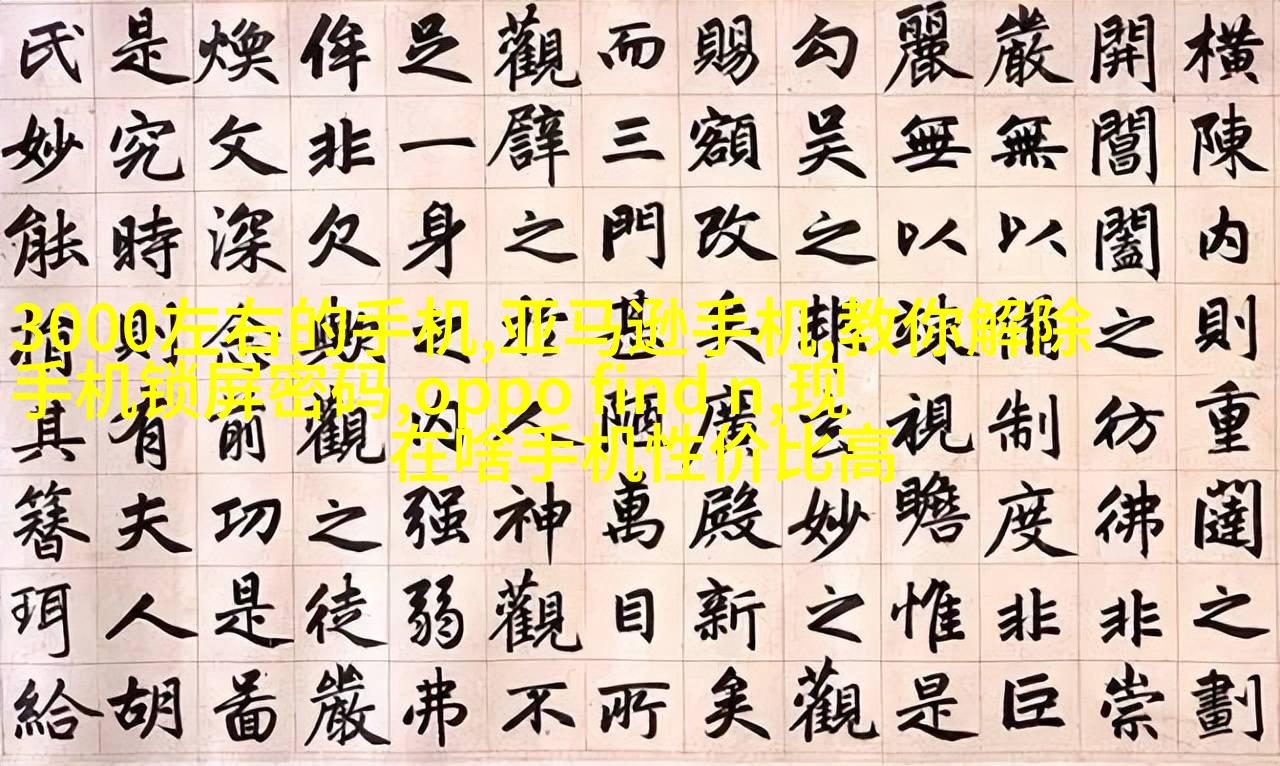 橫陳內則重闥之劃
開閶闔之彷彿非崇
嚴無以備制度非巨
麗無以竦視瞻惟是
勾吳之邦玄妙之觀
賜額改矣廣殿新矣
而三門甚陋萬目所
觀辟之人神觀不
足一身强弱弗
侔非欠歟觀之徒嚴
煥文深念前功是啚
是究時則有夫人胡
氏妙能捐其簪珥給
3000左右的手机,亚马逊手机,教你解除
手机锁屏密码,oppo find n,现
在啥手机性价比高